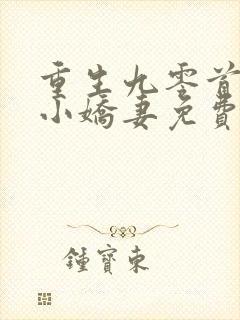 重生九零首
小嬌妻免費
鍾寶東